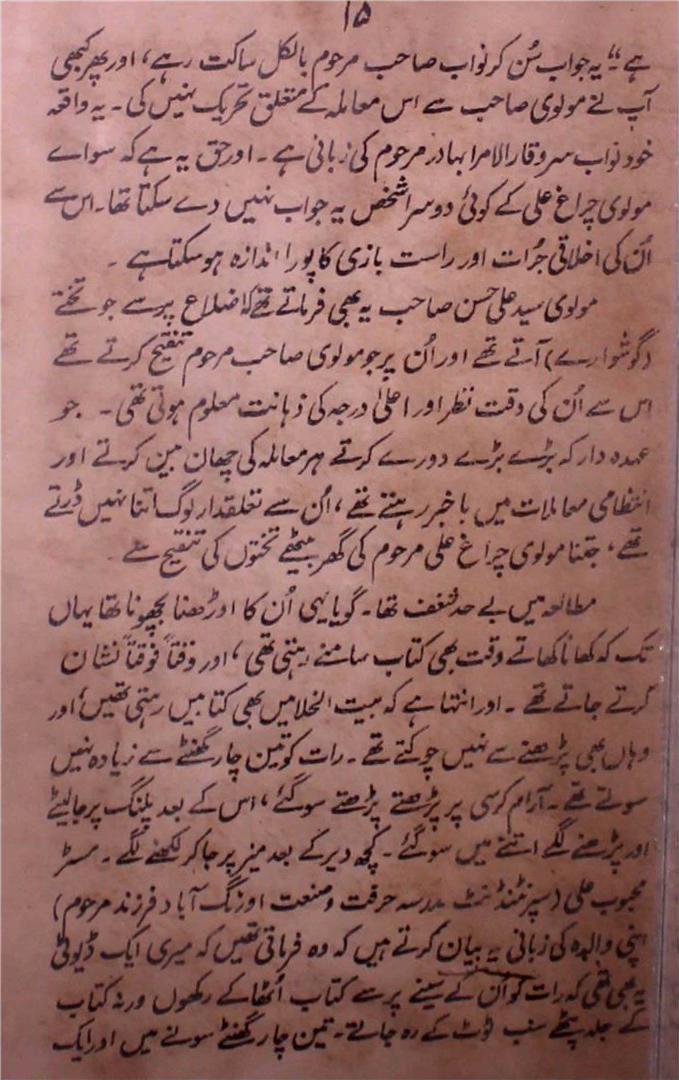 ۱۵
ہے“ یہ جواب سُن کر نواب صاحب مرحوم بالکل ساکت رہے، اور پھر کبھی
آپ نے مولوی صاحب سے اس معاملہ کے متعلق تحریک نہیں کی۔ یہ واقعہ
خود نواب سر وقار الامرا بہادر مرحوم کی زبانی ہے۔ اور حق یہ ہے کہ سواے
مولوی چراغ علی کے کوئی دوسرا شخص یہ جواب نہیں دے سکتا تھا۔ اس سے
اُن کی اخلاقی جرُات اور راست بازی کا پورا اندازہ ہو سکتا ہے ۔
مولوی سید علی حسن صاحب یہ بھی فرماتے تھے کہ اضلاع پر سے جو تختے
(گوشوارے) آتے تھے اور اُن پر جو مولوی صاحب مرحوم تنقیح کرتے تھے
اس سے اُن کی دقت نظر اور اعلیٰ درجہ کی ذہانت معلوم ہوتی تھی۔ جو
عہدہ دار کہ بڑے بڑے دورے کرتے ہر معاملہ کی چھان بین کرتے اور
انتظامی معاملات میں با خبر رہتے تھے ، اُن سے تعلقدار لوگ اتنا نہیں ڈرتے
تھے، جتنا مولوی چراغ علی مرحوم کی گھر بیٹھے تختوں کی تنقیح سے ۔
مطالعہ میں بے حد شغف تھا۔ گویا یہی اُن کا اوڑھنا بچھونا تھا یہاں
تک کہ کھانا کھاتے وقت بھی کتاب سامنے رہتی تھی ، اور وقتاً فوقتاً نشان
کرتے جاتے تھے ۔ اور انتہا ہے کہ بیت الخلا میں بھی کتابیں رہتی تھیں، اور
وہاں بھی پڑھنے سے نہیں چوکتے تھے ۔ رات کو تین چار گھنٹے سے زیادہ نہیں
سوتے تھے۔ آرام کرسی پر پڑھتے پڑھتے سو گئے ، اس کے بعد پلنگ پر جا لیٹے
اور پڑھنے لگے اتنے میں سو گئے۔ کچھ دیر کے بعد میز پر جا کر لکھنے لگے ۔ مسٹر
محبوب علی (سپرنٹنڈنٹ مدرسہ حرفت و صنعت اورنگ آباد فرزند مرحوم)
اپنی والدہ کی زبانی یہ بیان کرتے ہیں کہ وہ فرماتی تھیں کہ میری ایک ڈیوٹی
یہ بھی تھی کہ رات کو اُن کے سینے پر سے کتاب اُٹھا کے رکھوں ورنہ کتاب
کے جلد پٹھے سب ٹوٹ کے رہ جاتے۔ تین چار گھنٹے سونے میں اور ایک